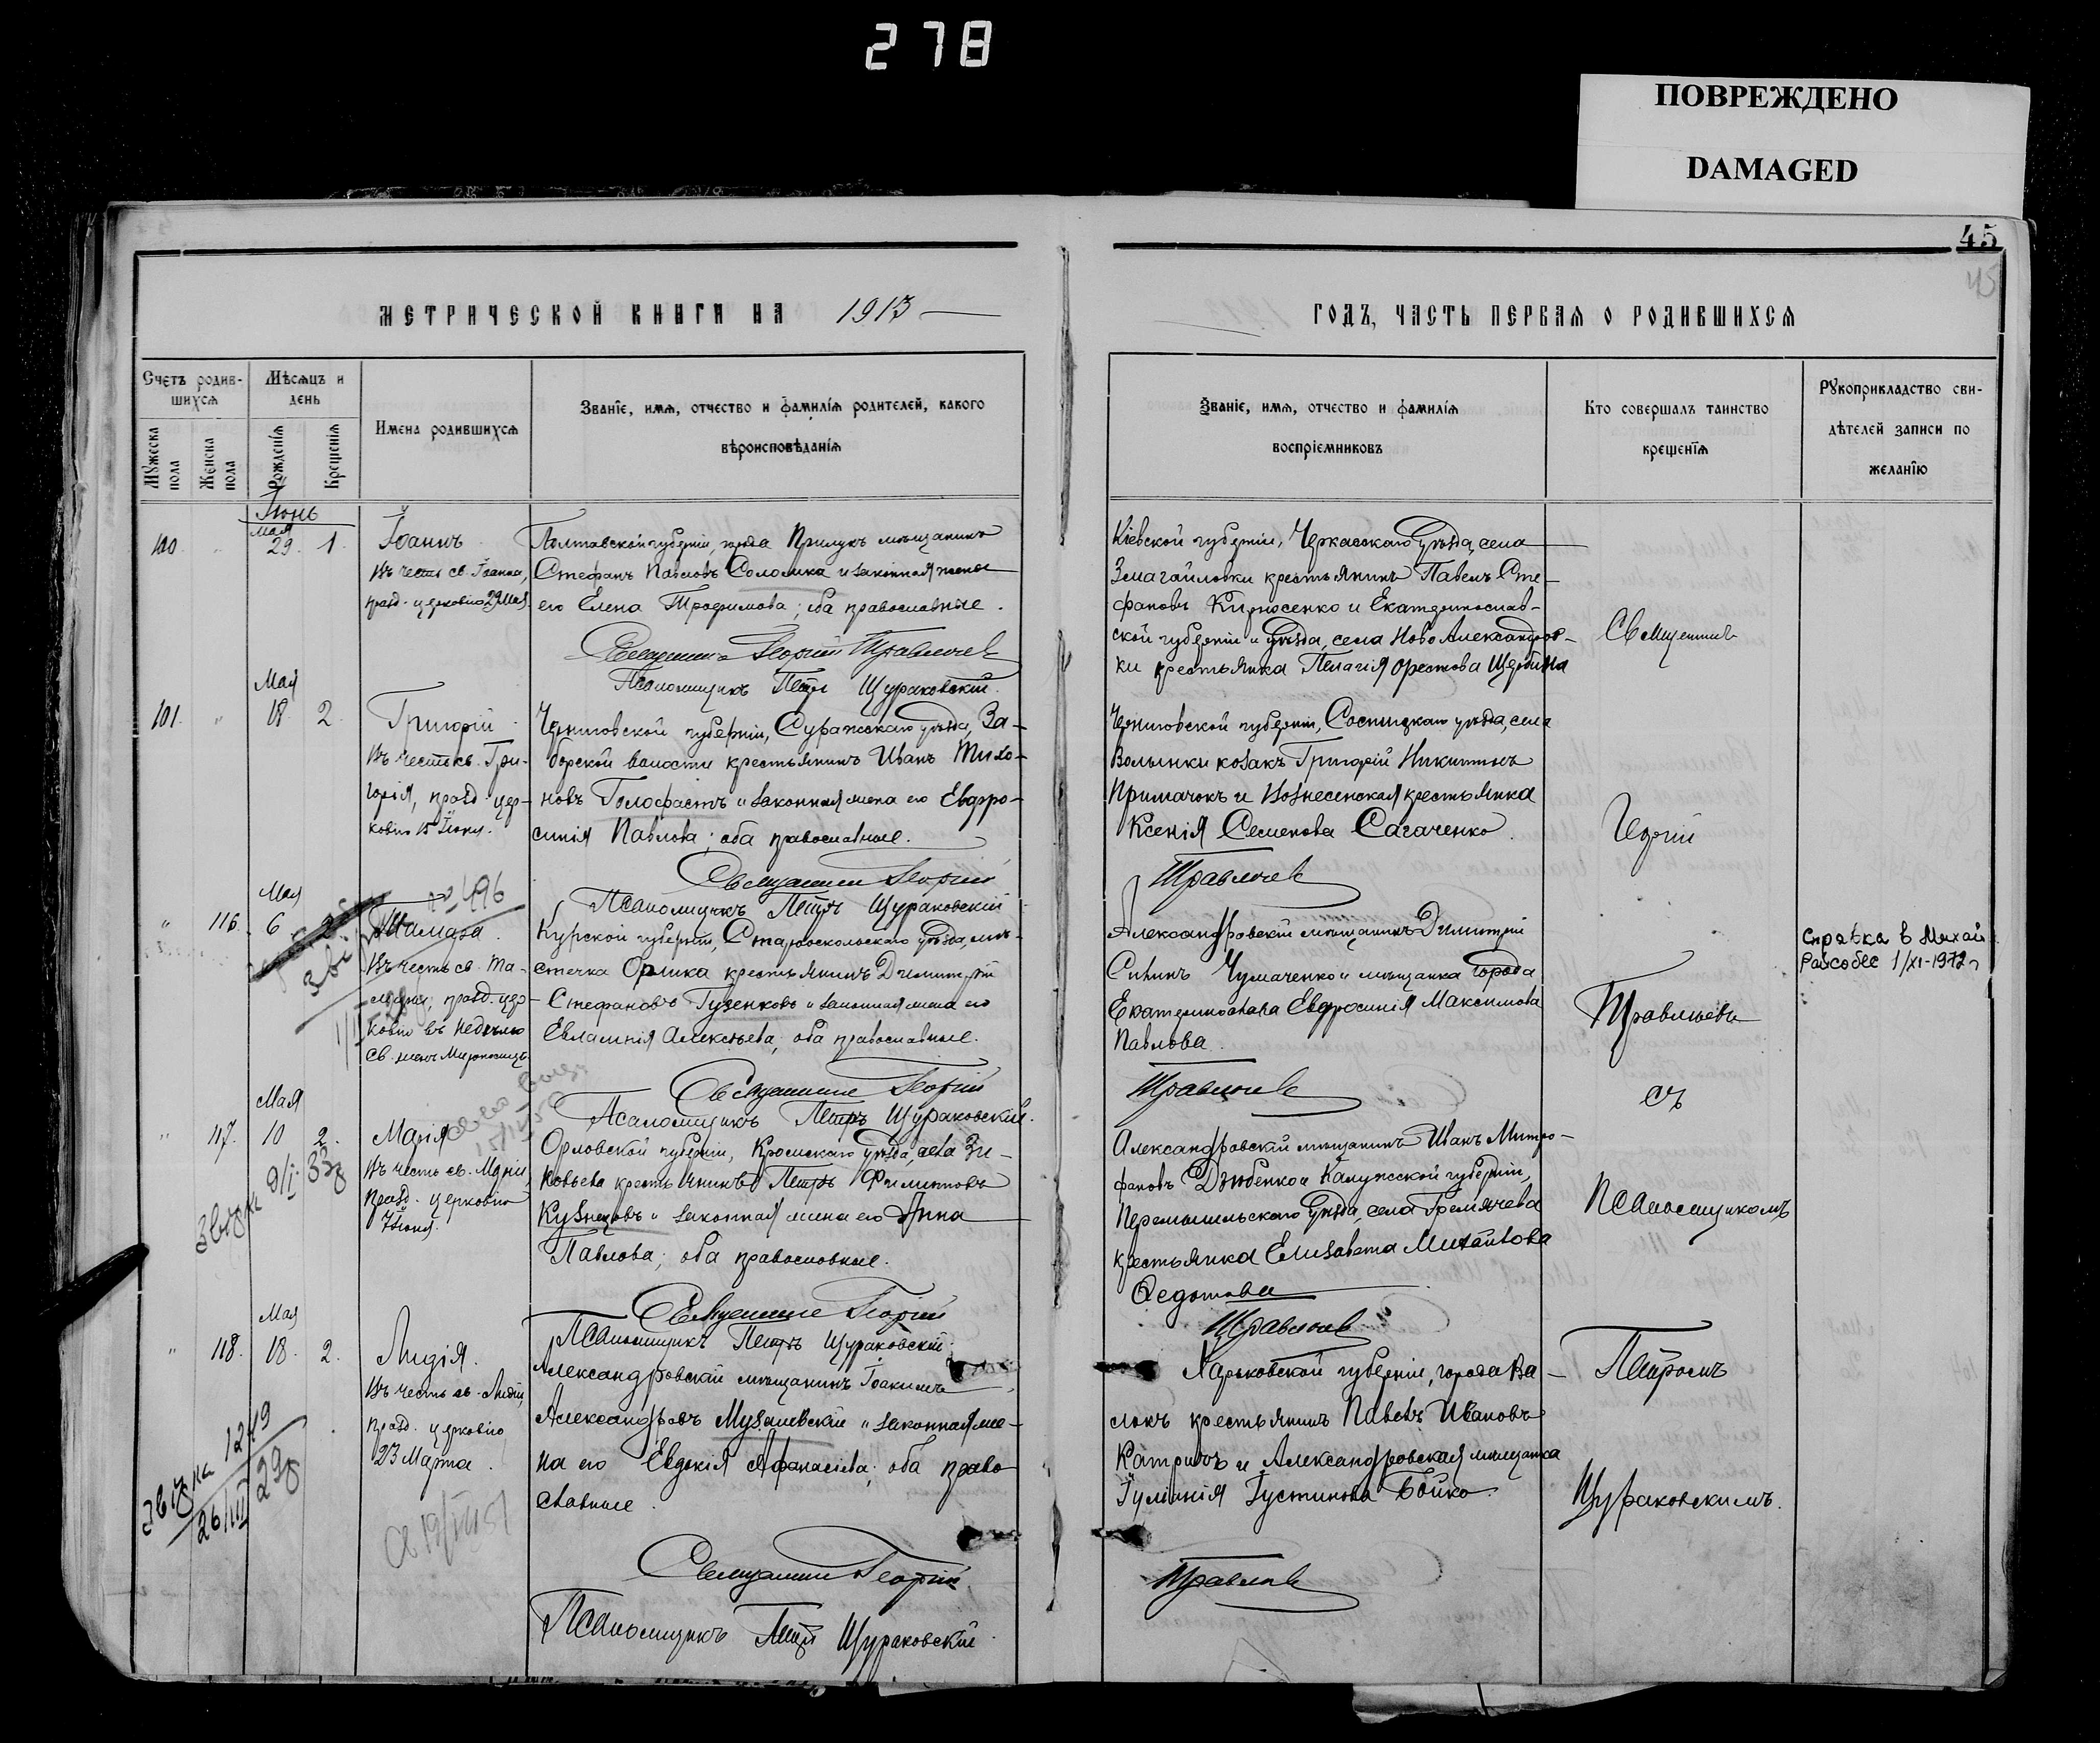 278
ПОВРЕЖДЕНО
DAMAGED
45
45
МЕТРИЧЕСКОЙ КНИГИ НА 1913
ГОДЪ, ЧАСТЬ ПЕРВАЯ О РОДИВШИХСЯ
Счетъ родив-
шихся
Мужеска пола
Женска пола
Мѣсяцъ и
день
Рожденія
Крещенія
Имена родившихся
Званіе, имя, отчество и фамилія родителей, какого
вѣроисповѣданія
Званіе, имя, отчество и фамилія
воспріемниковъ
Кто совершалъ таинство
крещенія
Рукоприкладство сви-
дѣтелей записи по
желанію
Іюнь
100 " Мая 29. 1.
Іоаннъ
Въ честь св. Іоанна,
празд. церковію 29 Мая.
Полтавской губерніи, города Прилукъ мѣщанинъ
Стефанъ Павловъ Соломка и законная жена
его Елена Трофимова; оба православные.
Священникъ Георгій
Псаломщикъ Петръ Щураковскій.
Кіевской губерніи, Черкасскаго уѣзда, села
Змагайловки крестьянинъ Павелъ Сте-
фановъ Кирносенко и Екатеринослав-
ской губерніи и уѣзда, села Ново Александров-
ки крестьянка Пелагія Орестова Щербина
Священникъ
101. " Мая 18. 2.
Григорій
Въ честь св. Гри-
горія, празд. цер-
ковію 15 Іюня.
Черниговской губерніи, Суражскаго уѣзда, За-
борской волости крестьянинъ Иванъ Тихо-
новъ Голофастъ и законная жена его Евфро-
синія Павлова; оба православные.
Священникъ Георгій
Псаломщикъ Петръ Щураковскій
Черниговской губерніи, Сосницкаго уѣзда, села
Волынки козакъ Григорій Никитинъ
Примачокъ и Вознесенская крестьянка
Ксенія Семенова Сагаченко.
Георгій
" 116. Мая 6. 2.
№ 496
Тамара.
Въ честь св. Та-
мары, празд. цер-
ковію въ недѣлю
св. жен. Мироносицъ
Курской губерніи, Старооскольскаго уѣзда, мѣ-
стечка Орлика крестьянинъ Димитрій
Стефановъ Гузенковъ и законная жена его
Евлампія Алексѣева; оба православные.
Священникъ Георгій
Псаломщикъ Петръ Щураковскій.
Александровскій мѣщанинъ Димитрій
Чумаченко и мѣщанка города
Екатеринослава Евфросинія Максимова
Павлова.
Справка в
Райсобес 1/XI-1972 г
" 117. Мая 10 2.
Звірка 9/I. 33г
Марія
Въ честь св. Маріи,
празд. церковію
7 Іюня.
Орловской губерніи, Кромскаго уѣзда, села Зи-
новьева крестьянинъ Петръ Филипповъ
Кузнецовъ и законная жена его Анна
Павлова; оба православные.
Священникъ Георгій
Псаломщикъ Петръ Щураковскій.
Александровскій мѣщанинъ Иванъ Митро-
фановъ Дзюбенко и Калужской губерніи,
Перемышльскаго уѣзда, села Гремячева
крестьянка Елизавета Михайлова
Федотова
съ
Псаломщикомъ
" 118. Мая 18. 2.
Звірка 1249
26/III 29г
Лидія.
Въ честь св. Лидіи,
празд. церковію
23 Марта.
Александровскій мѣщанинъ Іоакимъ
Александровъ Музалевскій и законная же-
на его Евдокія Афанасіева; оба право-
славные.
Священникъ Георгій
Псаломщикъ Петръ Щураковскій
Харьковской губерніи, города Ва-
локъ крестьянинъ Павелъ Ивановъ
и Александровская мѣщанка
Іуліанія Іустинова Бойко.
Петромъ
Щураковскимъ.